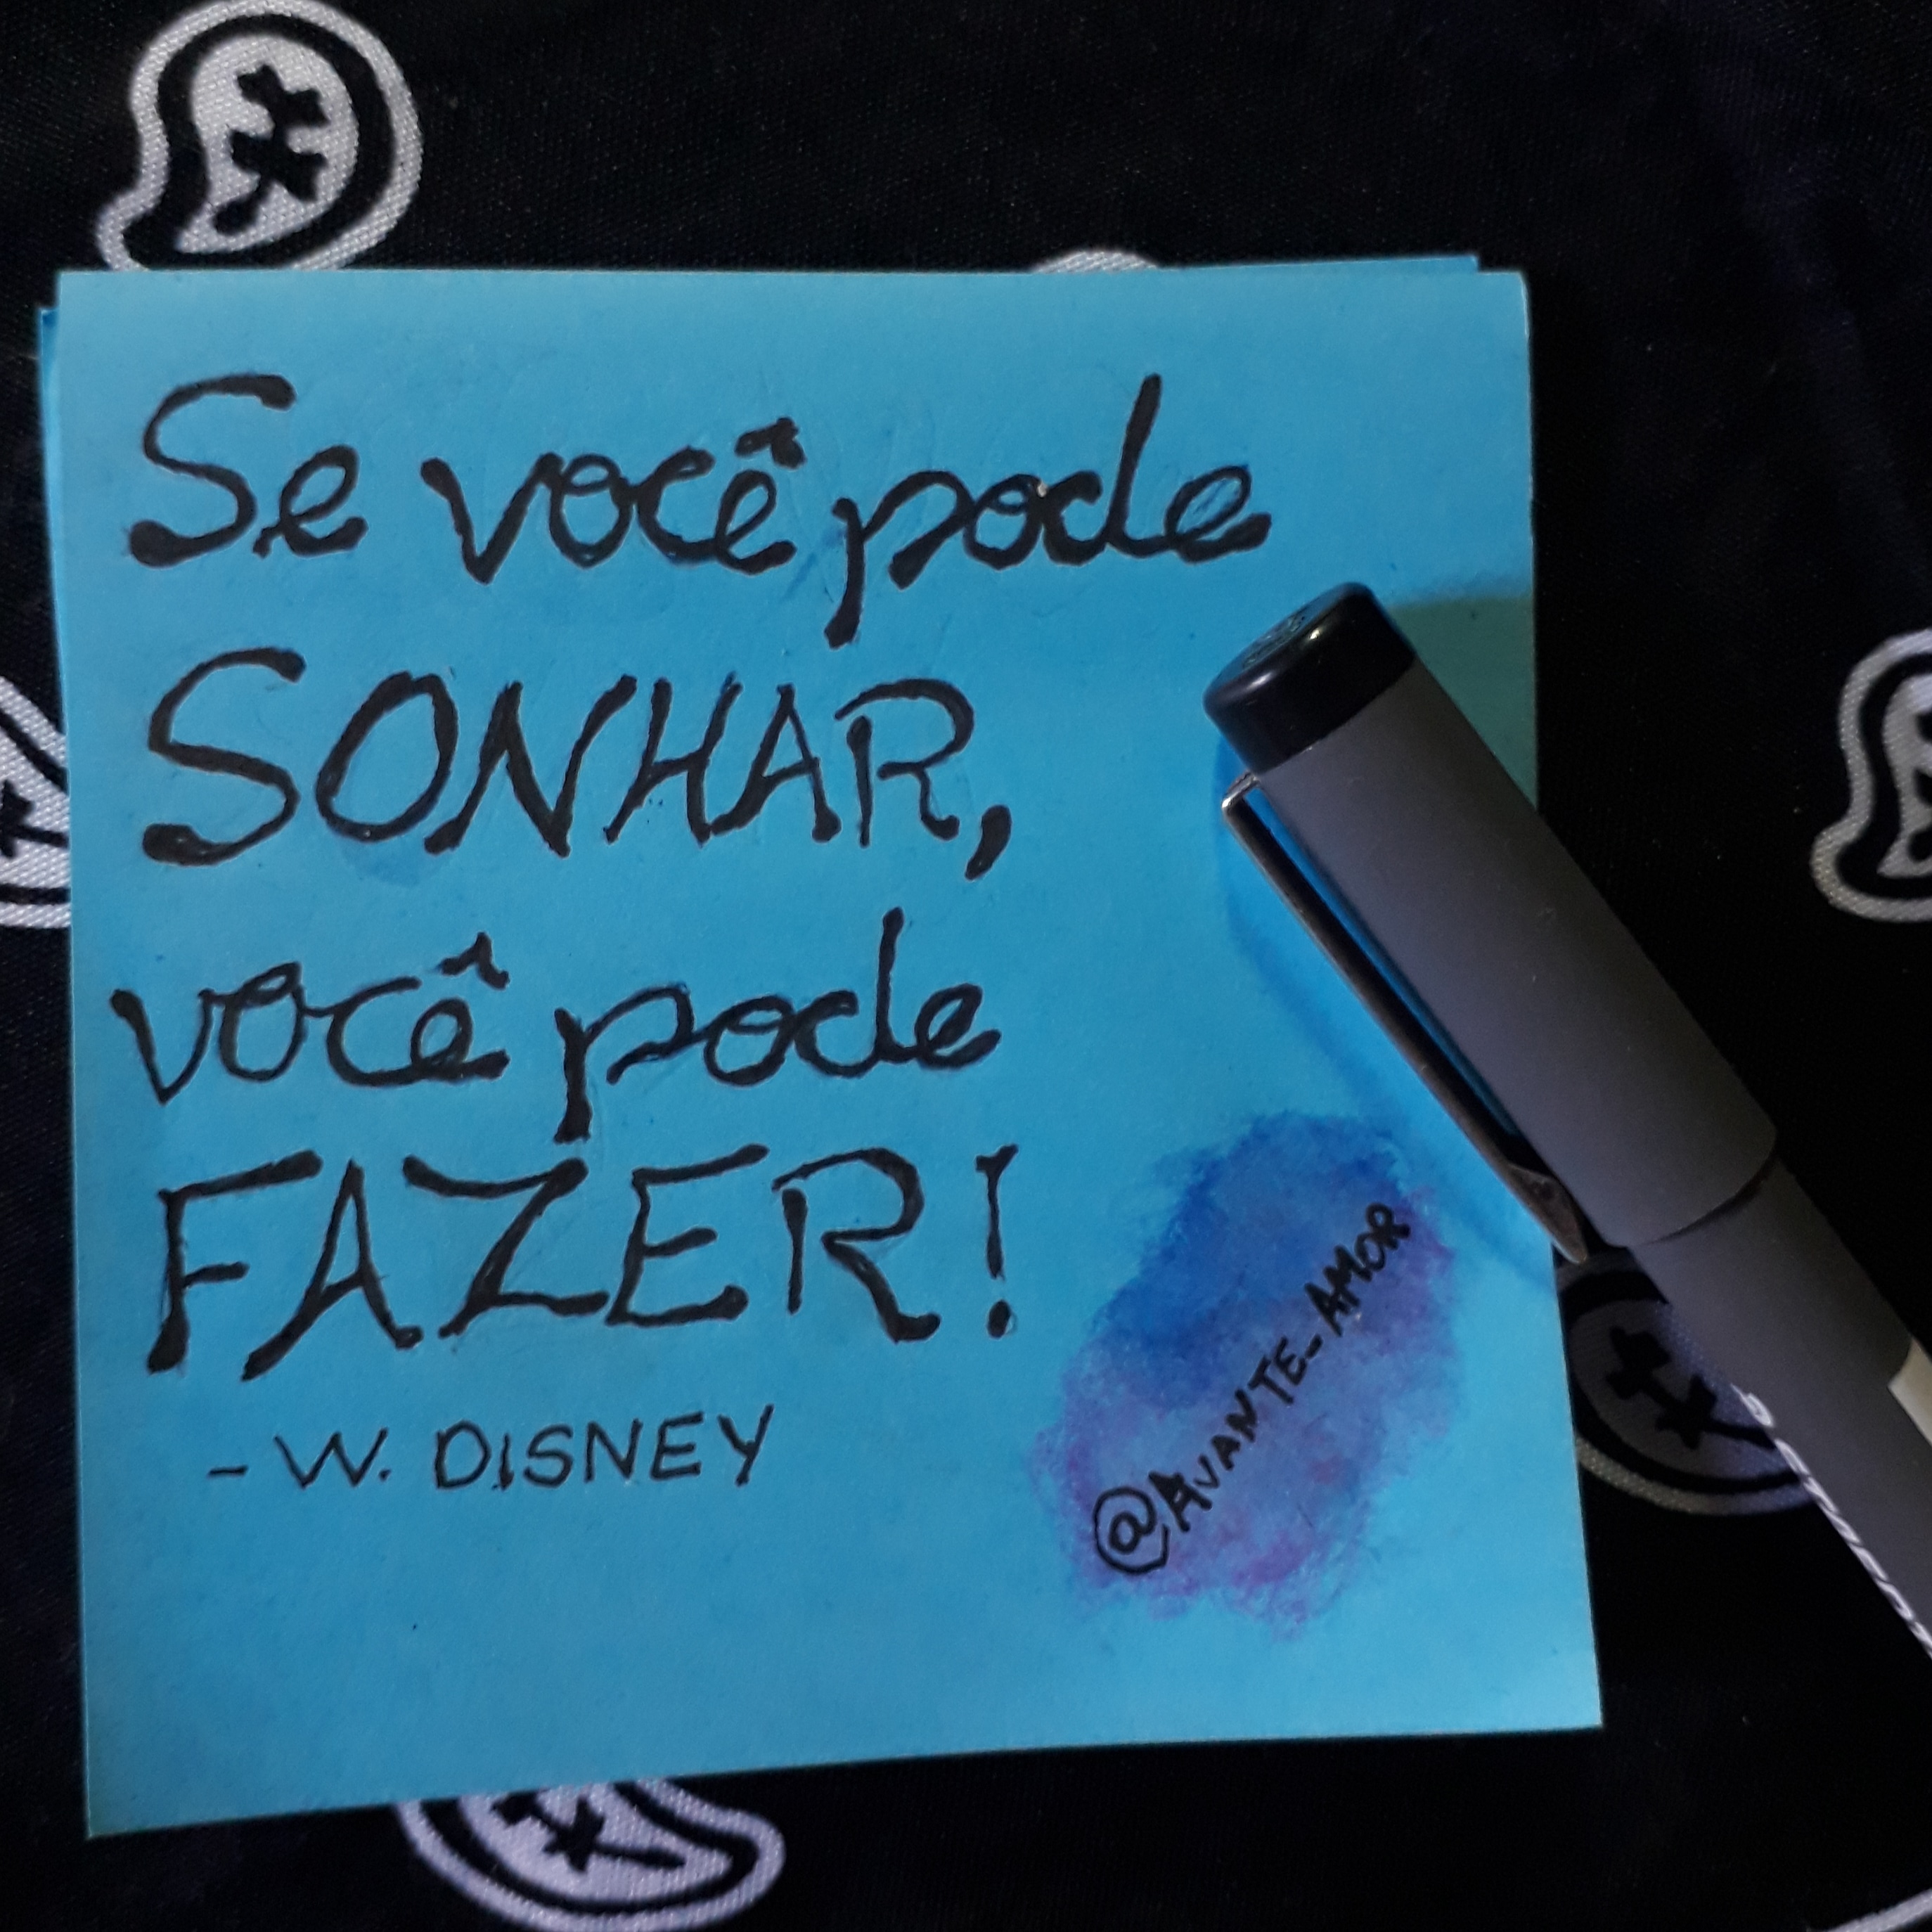 Se você pode
SONHAR,
você pode
FAZER!
- W. DISNEY
@AVANTE_AMOR